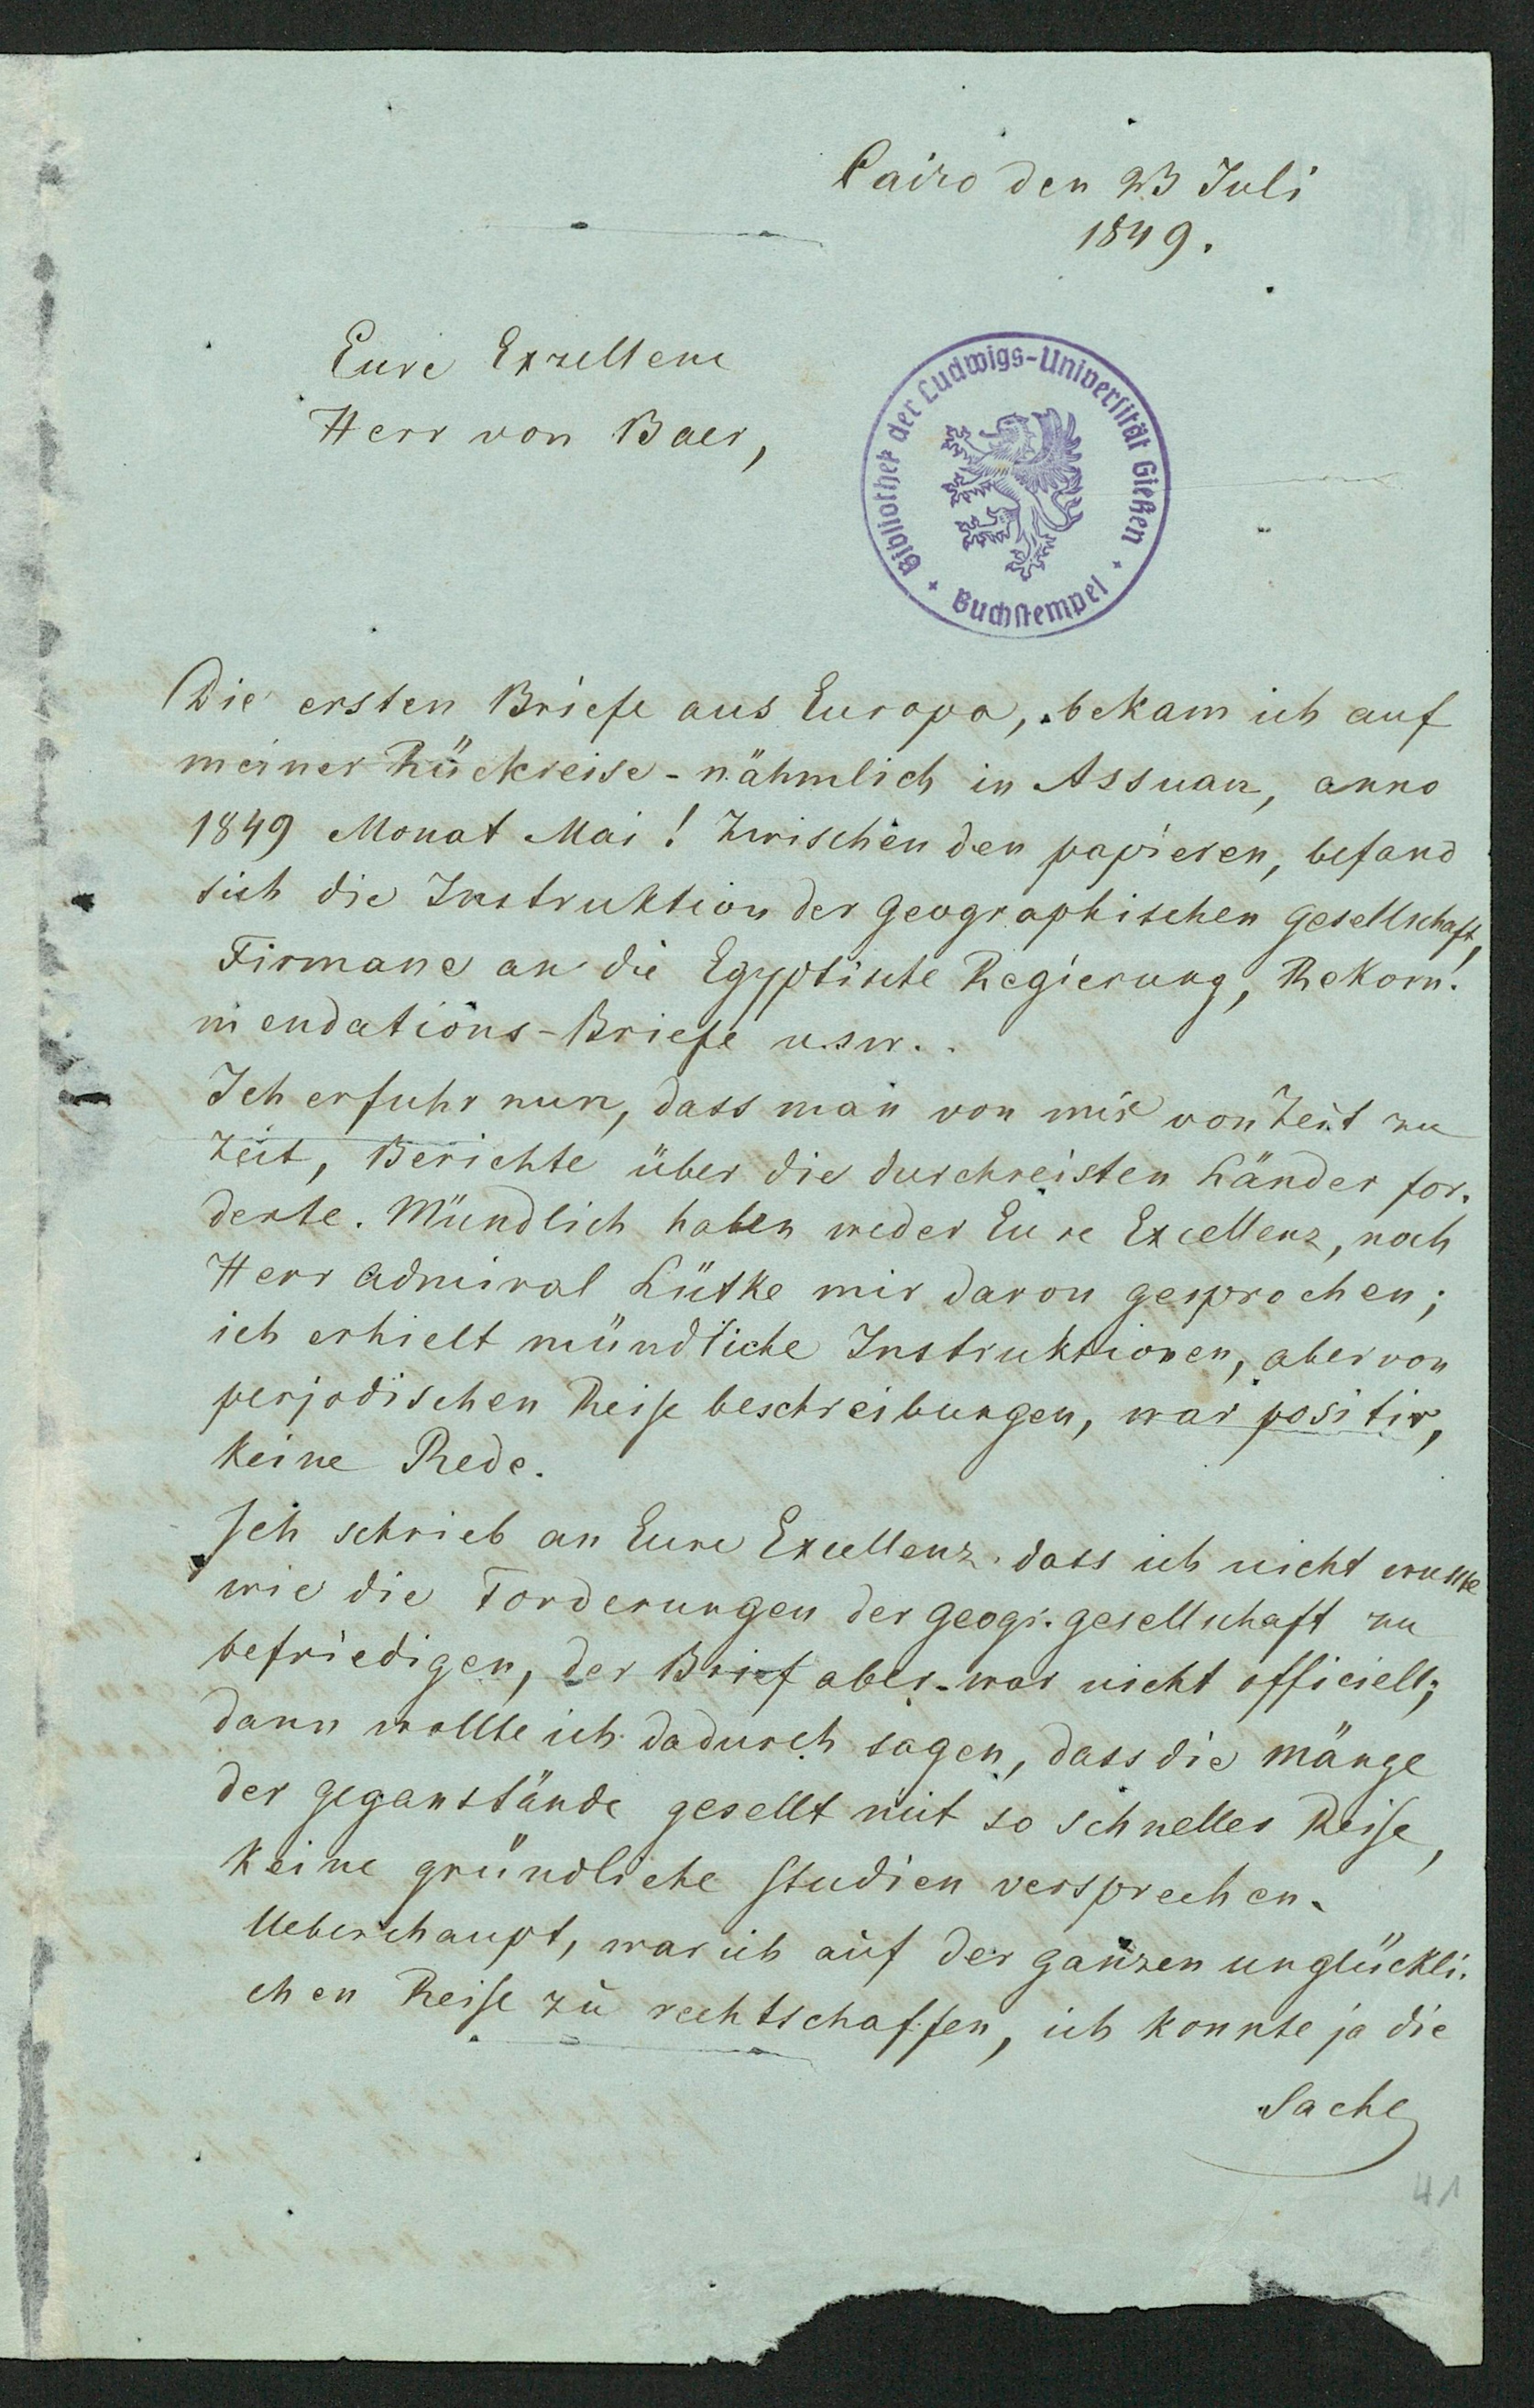 Cairo den 23 Juli
1849.
Eure Exzellenc
Herr von Baer,
Bibliothek der Ludwigs-Universität Gießen
Buchstempel
Die ersten Briefe aus Europa, bekam ich auf
meiner Rückreise - nähmlich in Assuan, anno
1849 Monat Mai! Zwischen den papieren, befand
sich die Instruktion der geographischen gesellschaft,
Firmane an die Egyptische Regierung, Rekom-
mendations-Briefe usw..
Ich erfuhr nun, dass man von mir von Zeit zu
Zeit, Berichte über die durchreisten Länder for-
derte. Mündlich haben weder Eure Excellenz, noch
Herr Admiral Lütke mir davon gesprochen;
ich erhielt mündliche Instruktionen, aber von
perjodischen Reise beschreibungen, war positiv,
keine Rede.
Ich schrieb an Eure Excellenz. dass ich nicht wusste
wie die Forderungen der geogr. gesellschaft zu
befriedigen, der Brief aber war nicht officiell;
dann wollte ich dadurch sagen, dass die mänge
der geganstände gesellt mit so schneller Reise,
keine gründliche Studien versprechen.
Ueberchaupt, war ich auf der ganzen unglückli-
chen Reise zu rechtschaffen, ich konnte ja die
Sache
41